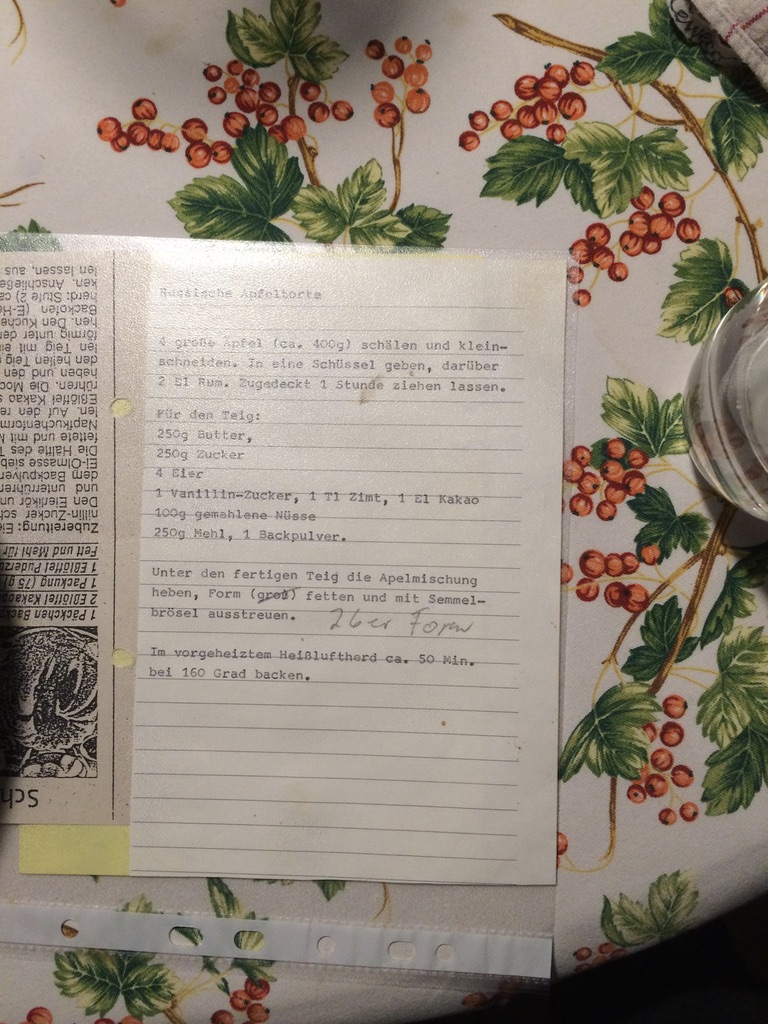 Russische Apfeltorte
4 große Äpfel (ca. 400g) schälen und klein-
schneiden. In eine Schüssel geben, darüber
2 El Rum. Zugedeckt 1 Stunde ziehen lassen.
Für den Teig:
250g Butter,
250g Zucker
4 Eier
1 Vanillin-Zucker, 1 Tl Zimt, 1 El Kakao
100g gemahlene Nüsse
250g Mehl, 1 Backpulver.
Unter den fertigen Teig die Apelmischung
heben, Form (groß) fetten und mit Semmel-
brösel ausstreuen. 26er Form
Im vorgeheiztem Heißluftherd ca. 50 Min.
bei 160 Grad backen.
Sch
1 Päckchen Back
2 Eßlöffel Kakao
1 Packung (75 g)
1 Eßlöffel Puderzu
Fett und Mehl für
Zubereitung: Ei
nillin-Zucker sch
Den Eierlikör un
und unterrühren
dem Backpulver
Ei-Ölmasse sieb
Die Hälfte des T
fettete und mit M
Napfkuchenform
len. Auf den re
Eßlöffel Kakao s
rühren. Die Moc
heben und den
den hellen Teig
len Teig mit ei
förmig unter de
hen. Den Kuche
Backofen (E-He
herd: Stufe 2) ca
ken. Anschließe
len lassen, aus